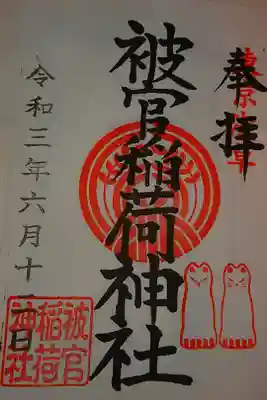 奉拝
東京浅草
被官稲荷神社
令和三年六月十
日
被官
稲荷
神社